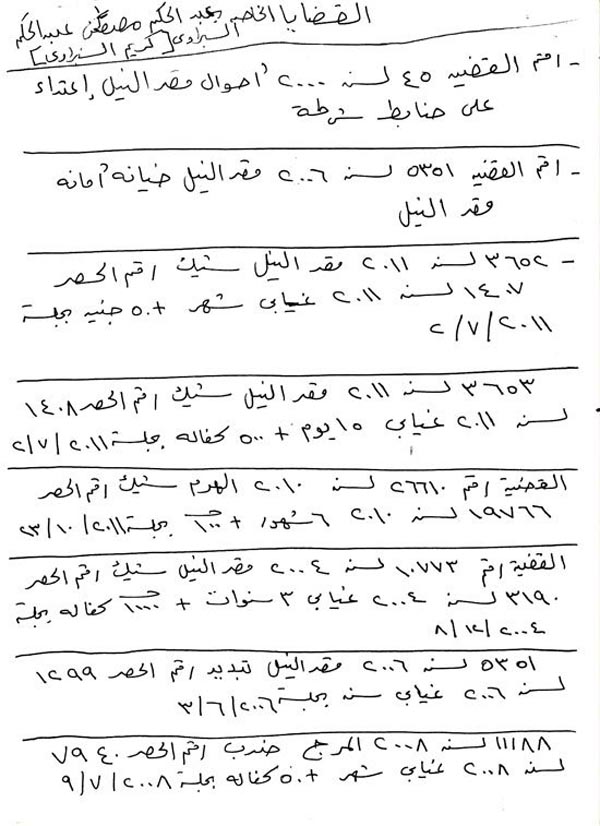 القضايا الخاصه بعبد الحكيم مصطفى عبد الحكيم
السنراوى [كريم السنراوى]
- رقم القضيه ٤٥ لسنه ٢٠٠٠ احوال مقر النيل إعتداء
على ضابط شرطة
- رقم القضيه ٥٣٥١ لسنه ٢٠٠٦ مقر النيل خيانه أمانه
مقر النيل
- ٣٦٥٢ لسنه ٢٠١١ مقر النيل شيك رقم الحصر
١٤٠٧ لسنه ٢٠١١ غيابي شهر + ٥٠ جنيه بجلسة
٢/٧/٢٠١١
٣٦٥٣ لسنه ٢٠١١ مقر النيل شيك رقم الحصر ١٤٠٨
لسنه ٢٠١١ غيابي ١٥ يوم + ٥٠٠ كفاله بجلسة ٢/٧/٢٠١١
القضية رقم ٢٦٦١٠ لسنه ٢٠١٠ الهرم شيك رقم الحصر
١٩٧٦٦ لسنه ٢٠١٠ ٦ شهور + ١٠٠ جـ بجلسة ٢٣/١٠/٢٠١١
القضية رقم ١٠٧٧٣ لسنه ٢٠٠٤ مقر النيل شيك رقم الحصر
٣١٩٠ لسنه ٢٠٠٤ غيابي ٣ سنوات + ١٠٠٠٠ جـ كفاله بجلسة
٨/١٢/٢٠٠٤
٥٣٥١ لسنه ٢٠٠٦ مقر النيل تبديد رقم الحصر ١٢٩٩
لسنه ٢٠٠٦ غيابي سنه بجلسة ٣/٦/٢٠٠٦
١١١٨٨ لسنه ٢٠٠٨ المرج ضرب رقم الحصر ٧٩٤٠
لسنه ٢٠٠٨ غيابي شهر + ٥٠ كفاله بجلسة ٩/٧/٢٠٠٨